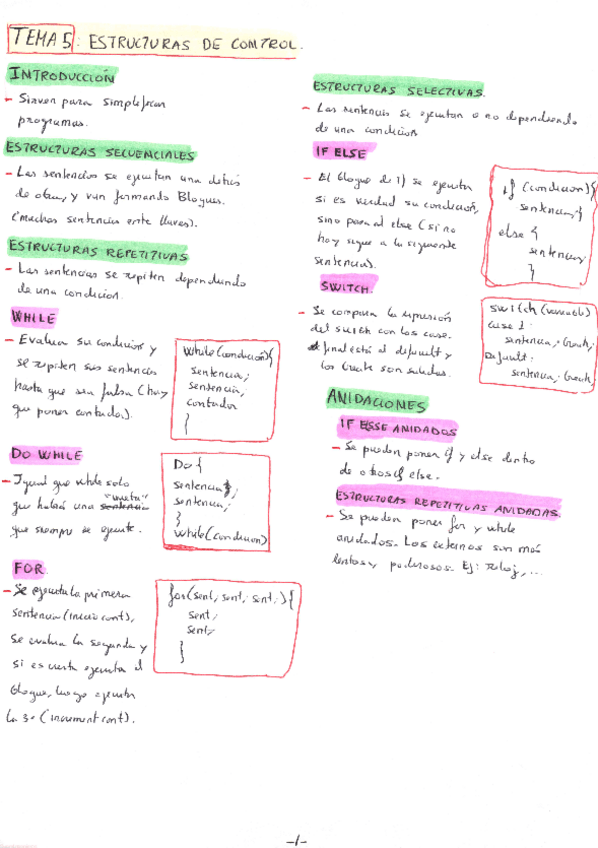 TEMA 5: ESTRUCTURAS DE CONTROL.
INTRODUCCIÓN
- Sirven para simplificar
programas.
ESTRUCTURAS SECUENCIALES
- Las sentencias se ejecutan una detrás
de otra, y van formando Bloques.
(muchas sentencias entre llaves).
ESTRUCTURAS REPETITIVAS
- Las sentencias se repiten dependiendo
de una condicion.
WHILE
- Evaluan su condicion y
se repiten sus sentencias
hasta que sea falsa (hay
que poner contador).
while(condición){
sentencia;
sentencia;
contador
}
DO WHILE
- Igual que while solo
que habrá una "vuelta"
que siempre se ejecute.
Do {
sentencia;
sentencia;
}
while(condicion)
FOR
- Se ejecuta la primera
sentencia (inicio cont),
se evalua la segunda y
si es cierta ejecuta el
bloque, luego ejecuta
la 3ª (increment cont).
for(sent, sent, sent,){
sent;
sent;
}
ESTRUCTURAS SELECTIVAS.
- Las sentencias se ejecutan o no dependiendo
de una condicion
IF ELSE
- El bloque de if se ejecuta
si es verdad su condición,
sino pasa al else (si no
hay sigue a la siguiente
sentencia).
if (condicion){
sentencia;}
else {
sentencia;
}
SWITCH.
- Se compara la expresión
del switch con los case.
Al final está el default y
los break son salidas.
switch (variable)
case 1:
sentencia; break;
Default:
sentencia; break;
ANIDACIONES
IF ESSE ANIDADOS
- Se pueden poner if y else dentro
de otros if else.
ESTRUCTURAS REPETITIVAS ANIDADAS.
- Se pueden poner for y while
anidados. Los externos son más
lentos y poderosos. Ej: Reloj, ...
-1-